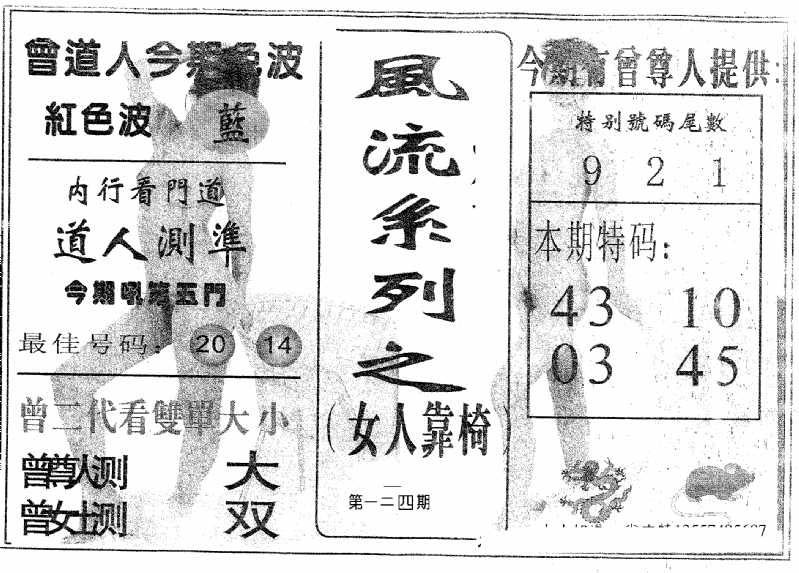 曾道人今期色波
紅色波 藍
内行看門道
道人測準
今期吼准五門
最佳号码: 20 14
曾二代看雙單大小
曾尊人测 大
曾女士测 双
風流系列之
(女人靠椅)
第一二四期
今期有曾尊人提供:
特别號碼尾數
9 2 1
本期特码:
43 10
03 45